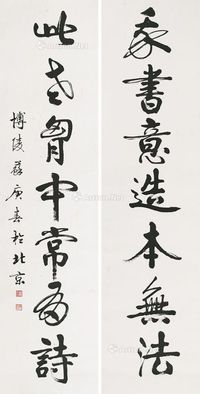 我書意造本無法
此老胸中常有詩
博陵蘇庚春於北京